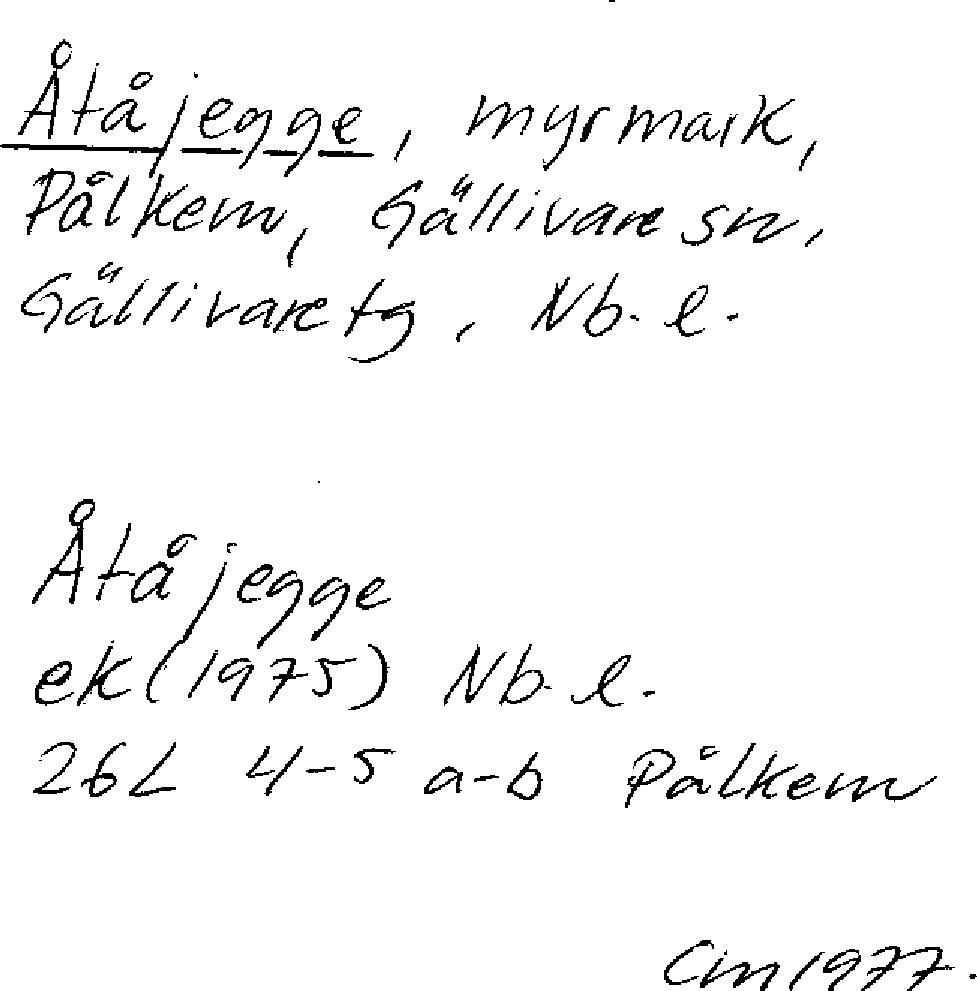 Åtåjegge, myrmark,
Pålkem, Gällivare sn,
Gällivare tg, Nb. l.
Åtåjegge
ek (1975) Nb. l.
26L 4-5 a-b Pålkem
Cm 1977.